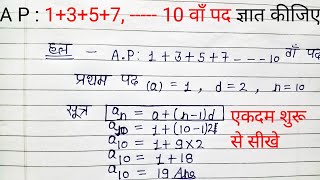 A P : 1+3+5+7, ----- 10 वाँ पद ज्ञात कीजिए
हल – A.P: 1+3+5+7 ---- 10 वाँ पद
प्रथम पद (a) = 1, d = 2, n = 10
सूत्र an = a+(n-1)d
a10 = 1+(10-1)2
a10 = 1+9×2
a10 = 1+18
a10 = 19 Ans
एकदम शुरू
से सीखे